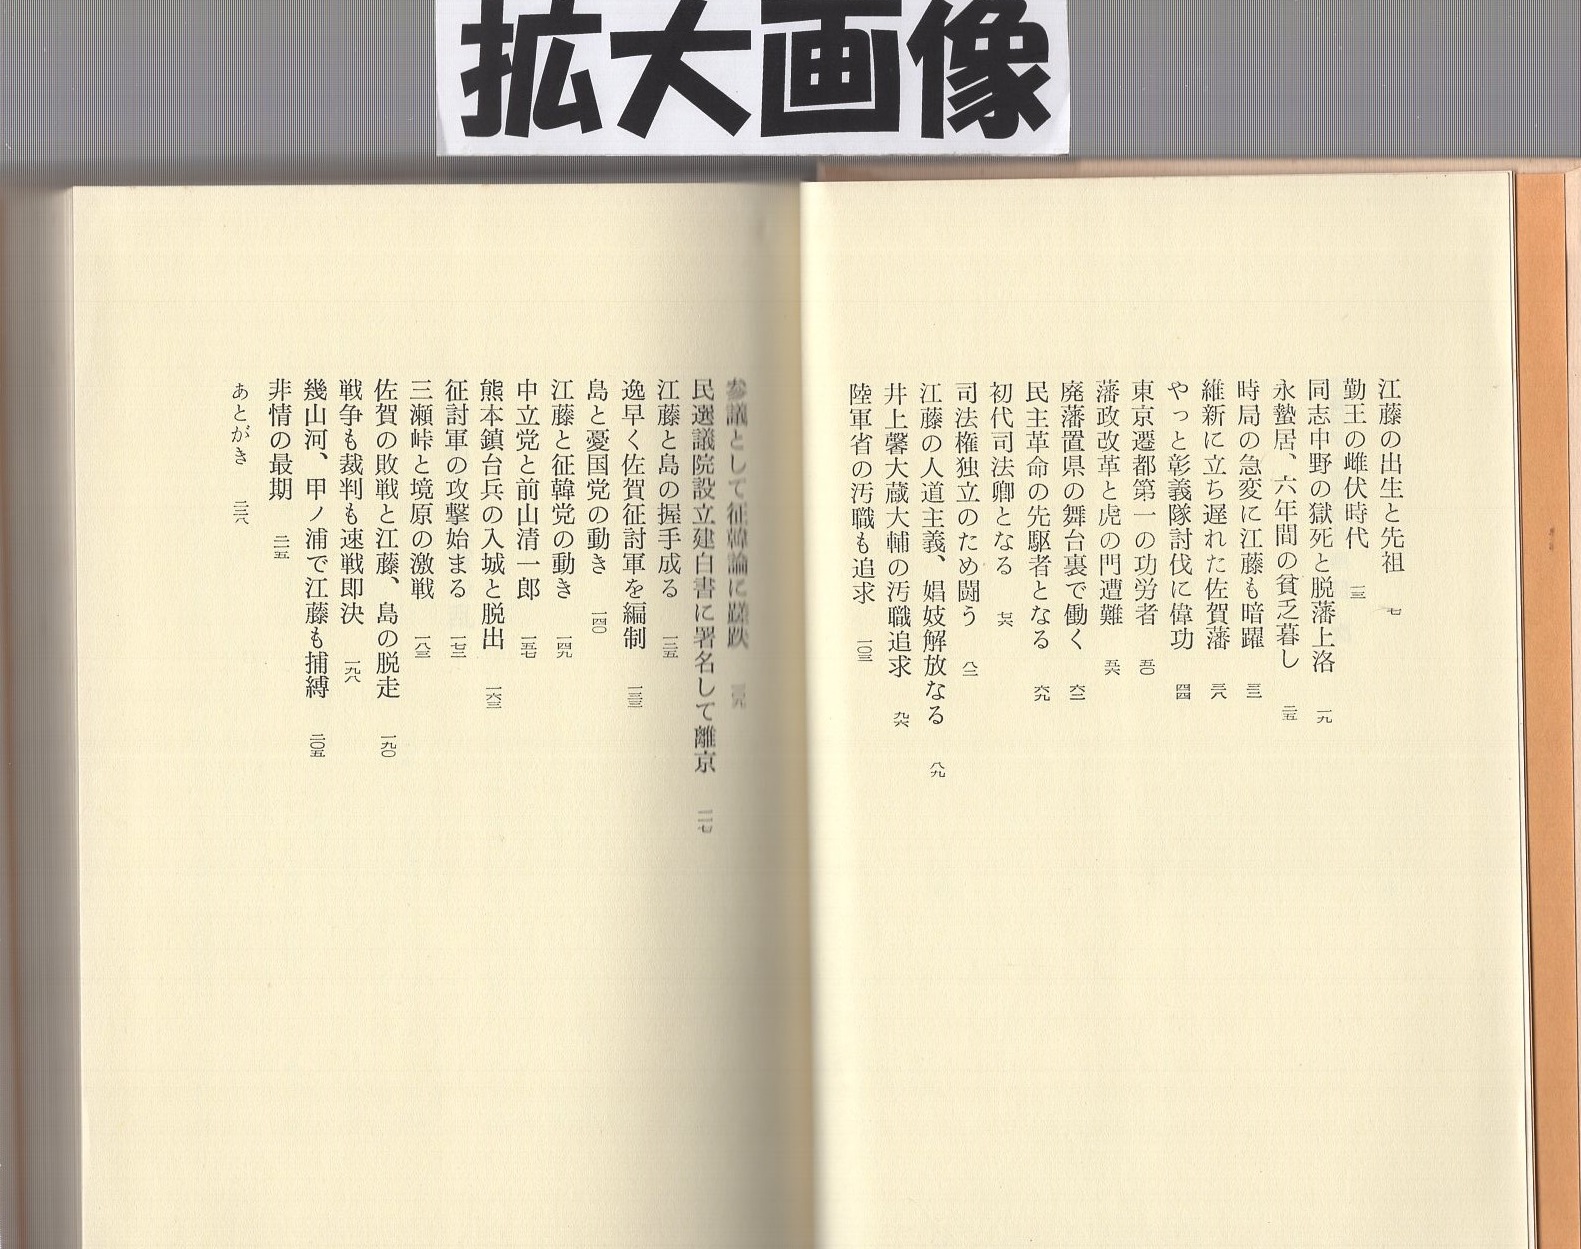 拡大画像
江藤の出生と先祖 七
勤王の雌伏時代 一三
同志中野の獄死と脱藩上洛 一九
永蟄居、六年間の貧乏暮し 二五
時局の急変に江藤も暗躍 三二
維新に立ち遅れた佐賀藩 三八
やっと彰義隊討伐に偉功 四四
東京遷都第一の功労者 五〇
藩政改革と虎の門遭難 五六
廃藩置県の舞台裏で働く 六二
民主革命の先駆者となる 六九
初代司法卿となる 七六
司法権独立のため闘う 八二
江藤の人道主義、娼妓解放なる 八九
井上馨大蔵大輔の汚職追求 九六
陸軍省の汚職も追求 一〇三
参議として征韓論に蹉跌 一〇九
民選議院設立建白書に署名して離京 一一七
江藤と島の握手成る 一二五
逸早く佐賀征討軍を編制 一三三
島と憂国党の動き 一四〇
江藤と征韓党の動き 一四九
中立党と前山清一郎 一五七
熊本鎮台兵の入城と脱出 一六三
征討軍の攻撃始まる 一七二
三瀬峠と境原の激戦 一八三
佐賀の敗戦と江藤、島の脱走 一九〇
戦争も裁判も速戦即決 一九八
幾山河、甲ノ浦で江藤も捕縛 二〇五
非情の最期 二一五
あとがき 二二八